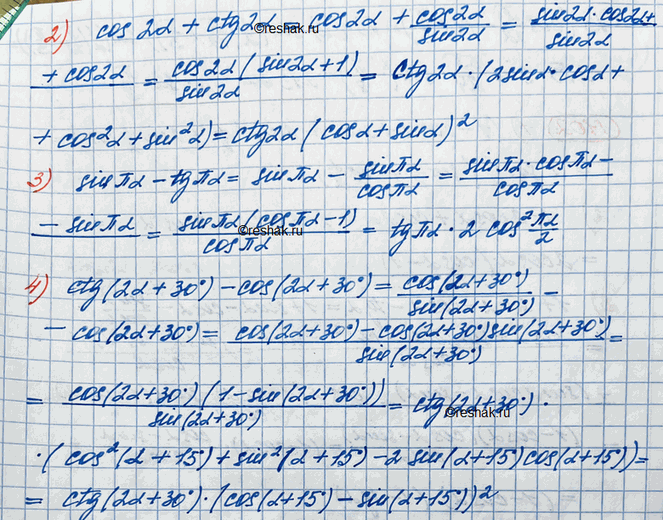 2) cos 2α + ctg 2α = cos 2α + cos2α/sin2α = sin2α · cos2α +/sin2α
+ cos2α = cos2α (sin2α + 1)/sin2α = ctg 2α · (2 sinα · cosα +
+ cos²α + sin²α) = ctg 2α (cosα + sinα)²
3) sin πα − tg πα = sin πα − sin πα/cos πα = sin πα · cos πα −/cos πα
− sin πα = sin πα (cos πα − 1)/cos πα = tg πα · 2 cos² πα/2
4) ctg (2α + 30°) − cos (2α + 30°) = cos(2α + 30°)/sin(2α + 30°) −
− cos (2α + 30°) = cos(2α + 30°) − cos(2α + 30°) sin(2α + 30°)/sin(2α + 30°) =
= cos(2α + 30°) (1 − sin(2α + 30°))/sin(2α + 30°) = ctg (2α + 30°) ·
· (cos² (α + 15°) + sin² (α + 15°) − 2 sin (α + 15°) cos (α + 15°)) =
= ctg (2α + 30°) · (cos (α + 15°) − sin (α + 15°))²
©reshak.ru
©reshak.ru
©reshak.ru